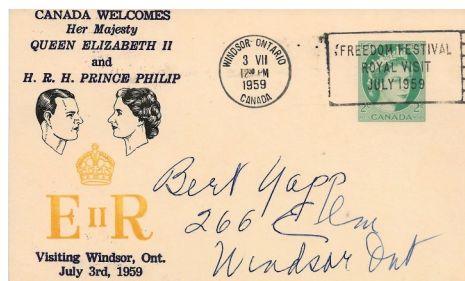 CANADA WELCOMES
Her Majesty
QUEEN ELIZABETH II
and
H. R. H. PRINCE PHILIP
E II R
Visiting Windsor, Ont.
July 3rd, 1959
WINDSOR ONTARIO
3 VII
PM
1959
CANADA
FREEDOM FESTIVAL
ROYAL VISIT
JULY 1959
2 CANADA 2
Bert Yapp
266 Elm
Windsor Ont